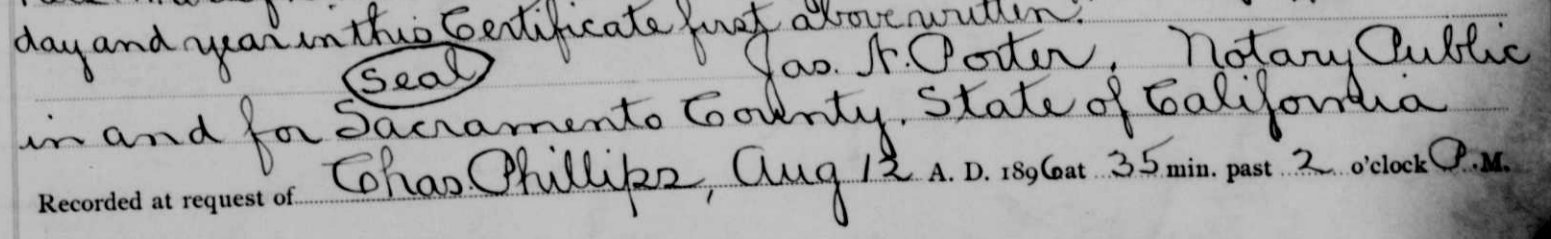 day and year in this Certificate first above written.
Seal Jas. N. Porter, Notary Public
in and for Sacramento County, State of California
Recorded at request of Chas. Phillips, Aug 12 A. D. 1896 at 35 min. past 2 o'clock P.M.